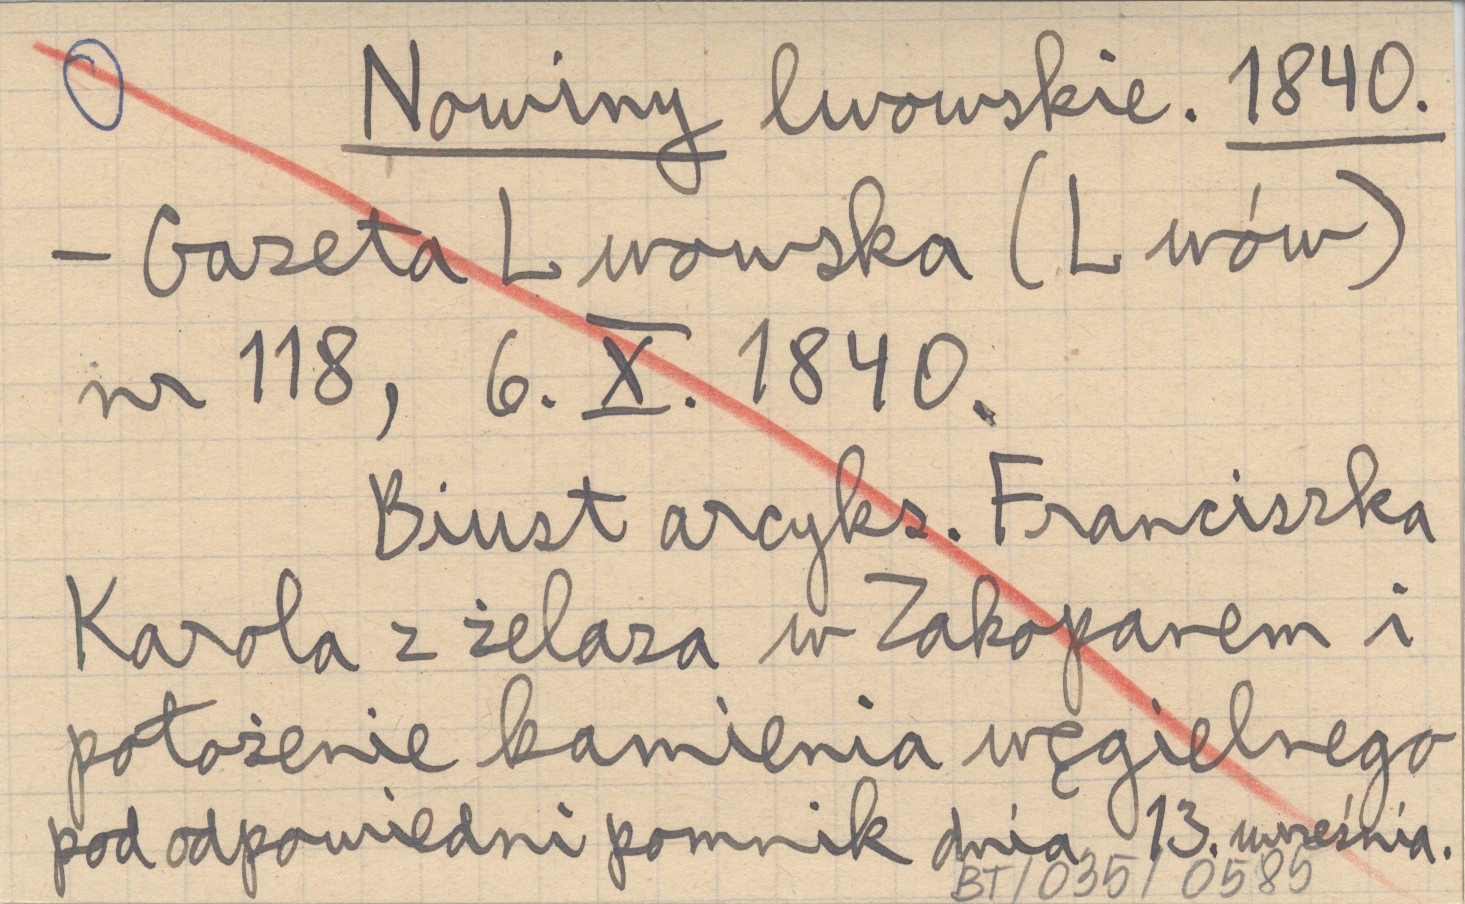 Nowiny lwowskie. 1840.
- Gazeta Lwowska (Lwów)
nr 118, 6. X. 1840.
Biust arcyks. Franciszka
Karola z żelaza w Zakopanem i
położenie kamienia węgielnego
pod odpowiedni pomnik dnia 13. września.
BT/035/0585